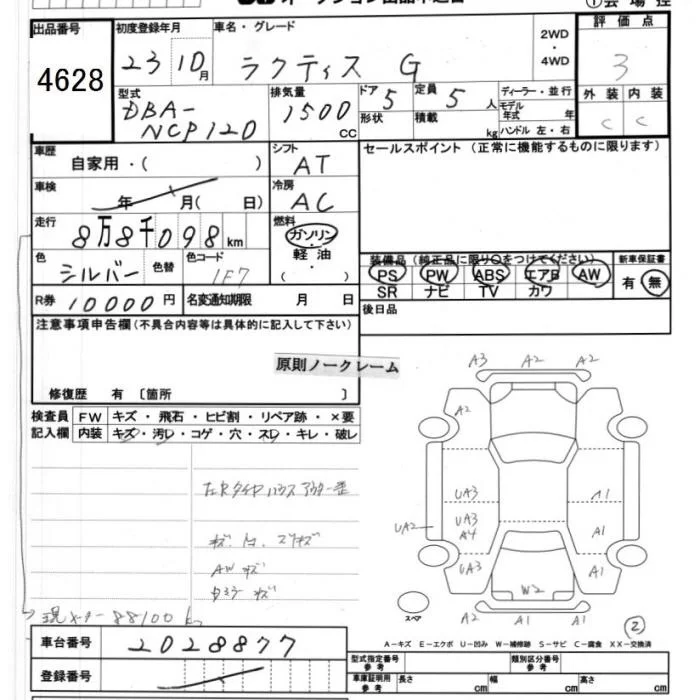 出品番号
4628
初度登録年月
23 10月
車名・グレード
ラクティス G
2WD
・
4WD
評価点
3
型式
DBA-
NCP120
排気量
1500
CC
ドア
5
形状
定員
5 人
積載
kg
ディーラー・並行
モデル
年式 年
ハンドル 左・右
外装 内装
C C
車歴
自家用・( )
シフト
AT
セールスポイント (正常に機能するものに限ります)
車検
年 月( 日)
冷房
AC
走行
8万8千098km
燃料
ガソリン
・
軽油
・
( )
色
シルバー
色替
色コード
1F7
装備品 (純正品に限り○をつけてください)
PS PW ABS エアB AW
SR ナビ TV カワ
新車保証書
有・無
R券 10000円
名変通知期限 月 日
後日品
注意事項申告欄(不具合内容等は具体的に記入して下さい)
原則ノークレーム
修復歴 有 〔箇所 〕
検査員
記入欄
FW キズ・飛石・ヒビ割・リペア跡・×要
内装 キズ・汚レ・コゲ・穴・スレ・キレ・破レ
AW キズ
現メーター 88100k
A3 A2 A2
A2
UA3 A1
UA3
A4
UA2
A1
UA3 A1
W2
スペア
A2 A1 A1
②
A-キズ E-エクボ U-凹み W-補修跡 S-サビ C-腐食 XX-交換済
車台番号
2028877
登録番号
型式指定番号
参考
類別区分番号
参考
車庫証明用
参考
長さ cm
幅 cm
高さ cm